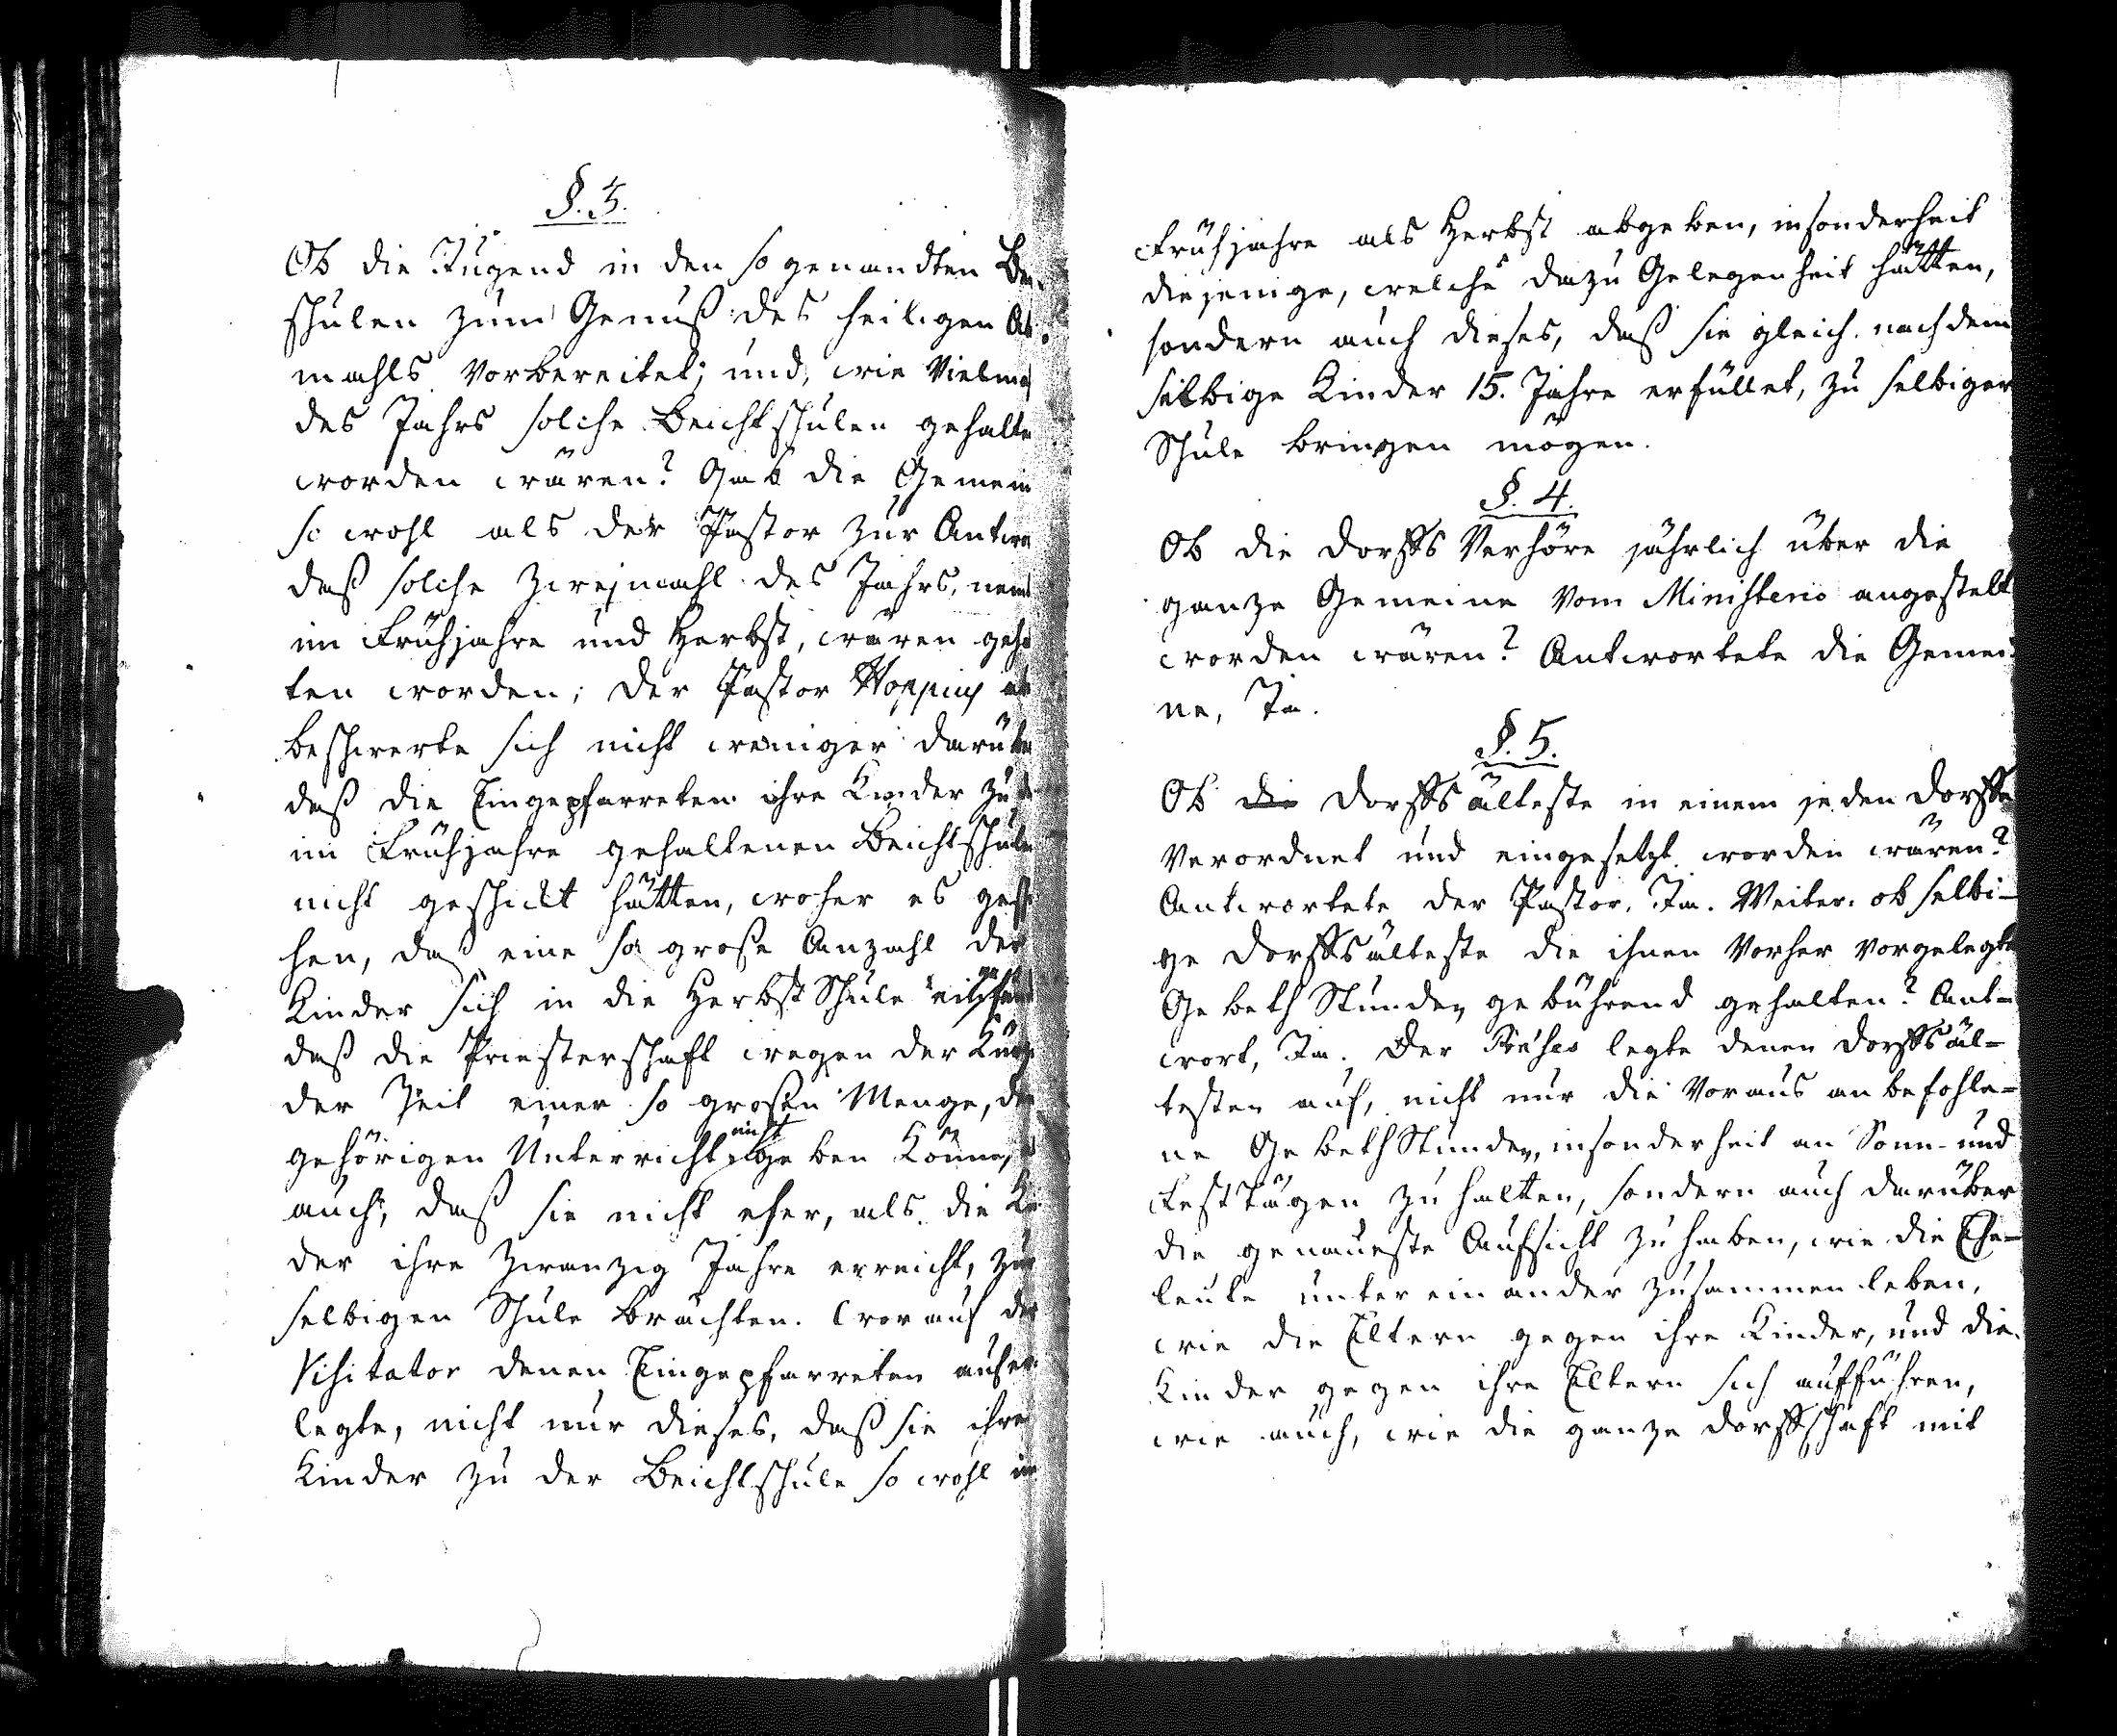 §. 3.
Ob die Jugend in den so genandten Be-
schulen zum Genuß des heiligen Ab
mahls vorbereitet; und, wie vielma
des Jahrs solche Beichtschulen gehalte
worden wären? Gab die Gemein
so wohl als der Pastor zur Antwo
daß solche zweymahl des Jahrs, neml
im Frühjahre und Herbst, wären geha
ten worden; der Pastor Hoppius
beschwerte sich nicht weniger darübe
daß die Eingepfarreten ihre Kinder zu
im Frühjahre gehaltenen Beichtschule
nicht geschickt hätten, woher es gesch
hen, daß eine so große Anzahl der
Kinder sich in die Herbst Schule
daß die Priesterschafft wegen der Kürtz
der Zeit einer so großen Menge, den
gehörigen Unterricht nicht geben könne,
auch, daß sie nicht eher, als die Ki
der ihre zwanzig Jahre erreicht, zu
selbigen Schule brächten. Worauf der
Visitator denen Eingepfarreten aufer
legte, nicht nur dieses, daß sie ihre
Kinder zu der Beichtschule so wohl im
Frühjahre als Herbst abgeben, insonderheit
diejenige, welche dazu Gelegenheit hätten,
sondern auch dieses, daß sie gleich nachdem
selbige Kinder 15. Jahre erfüllet, zu selbiger
Schule bringen mögen.
§. 4.
Ob die Dorffs Verhöre jährlich über die
ganze Gemeine vom Ministerio angestelt
worden wären? Antwortete die Gemei-
ne, Ja.
§. 5.
Ob die Dorffsälteste in einem jeden Dorffe
verordnet und eingesetzt worden wären?
Antwortete der Pastor, Ja. Weiter: ob selbi-
ge Dorffsälteste die ihnen vorher vorgelegte
Gebeth Stunden gebührend gehalten? Ant-
wort, Ja. Der Präses legte denen Dorffsäl-
testen auf, nicht nur die voraus anbefohle-
ne Gebeth Stunden, insonderheit an Sonn- und
Fest Tägen zu halten, sondern auch darüber
die genaueste Aufsicht zu haben, wie die Ehe-
leute unter einander zusammen leben,
wie die Eltern gegen ihre Kinder, und die
Kinder gegen ihre Eltern sich aufführen,
wie auch, wie die ganze Dorffschaft mit